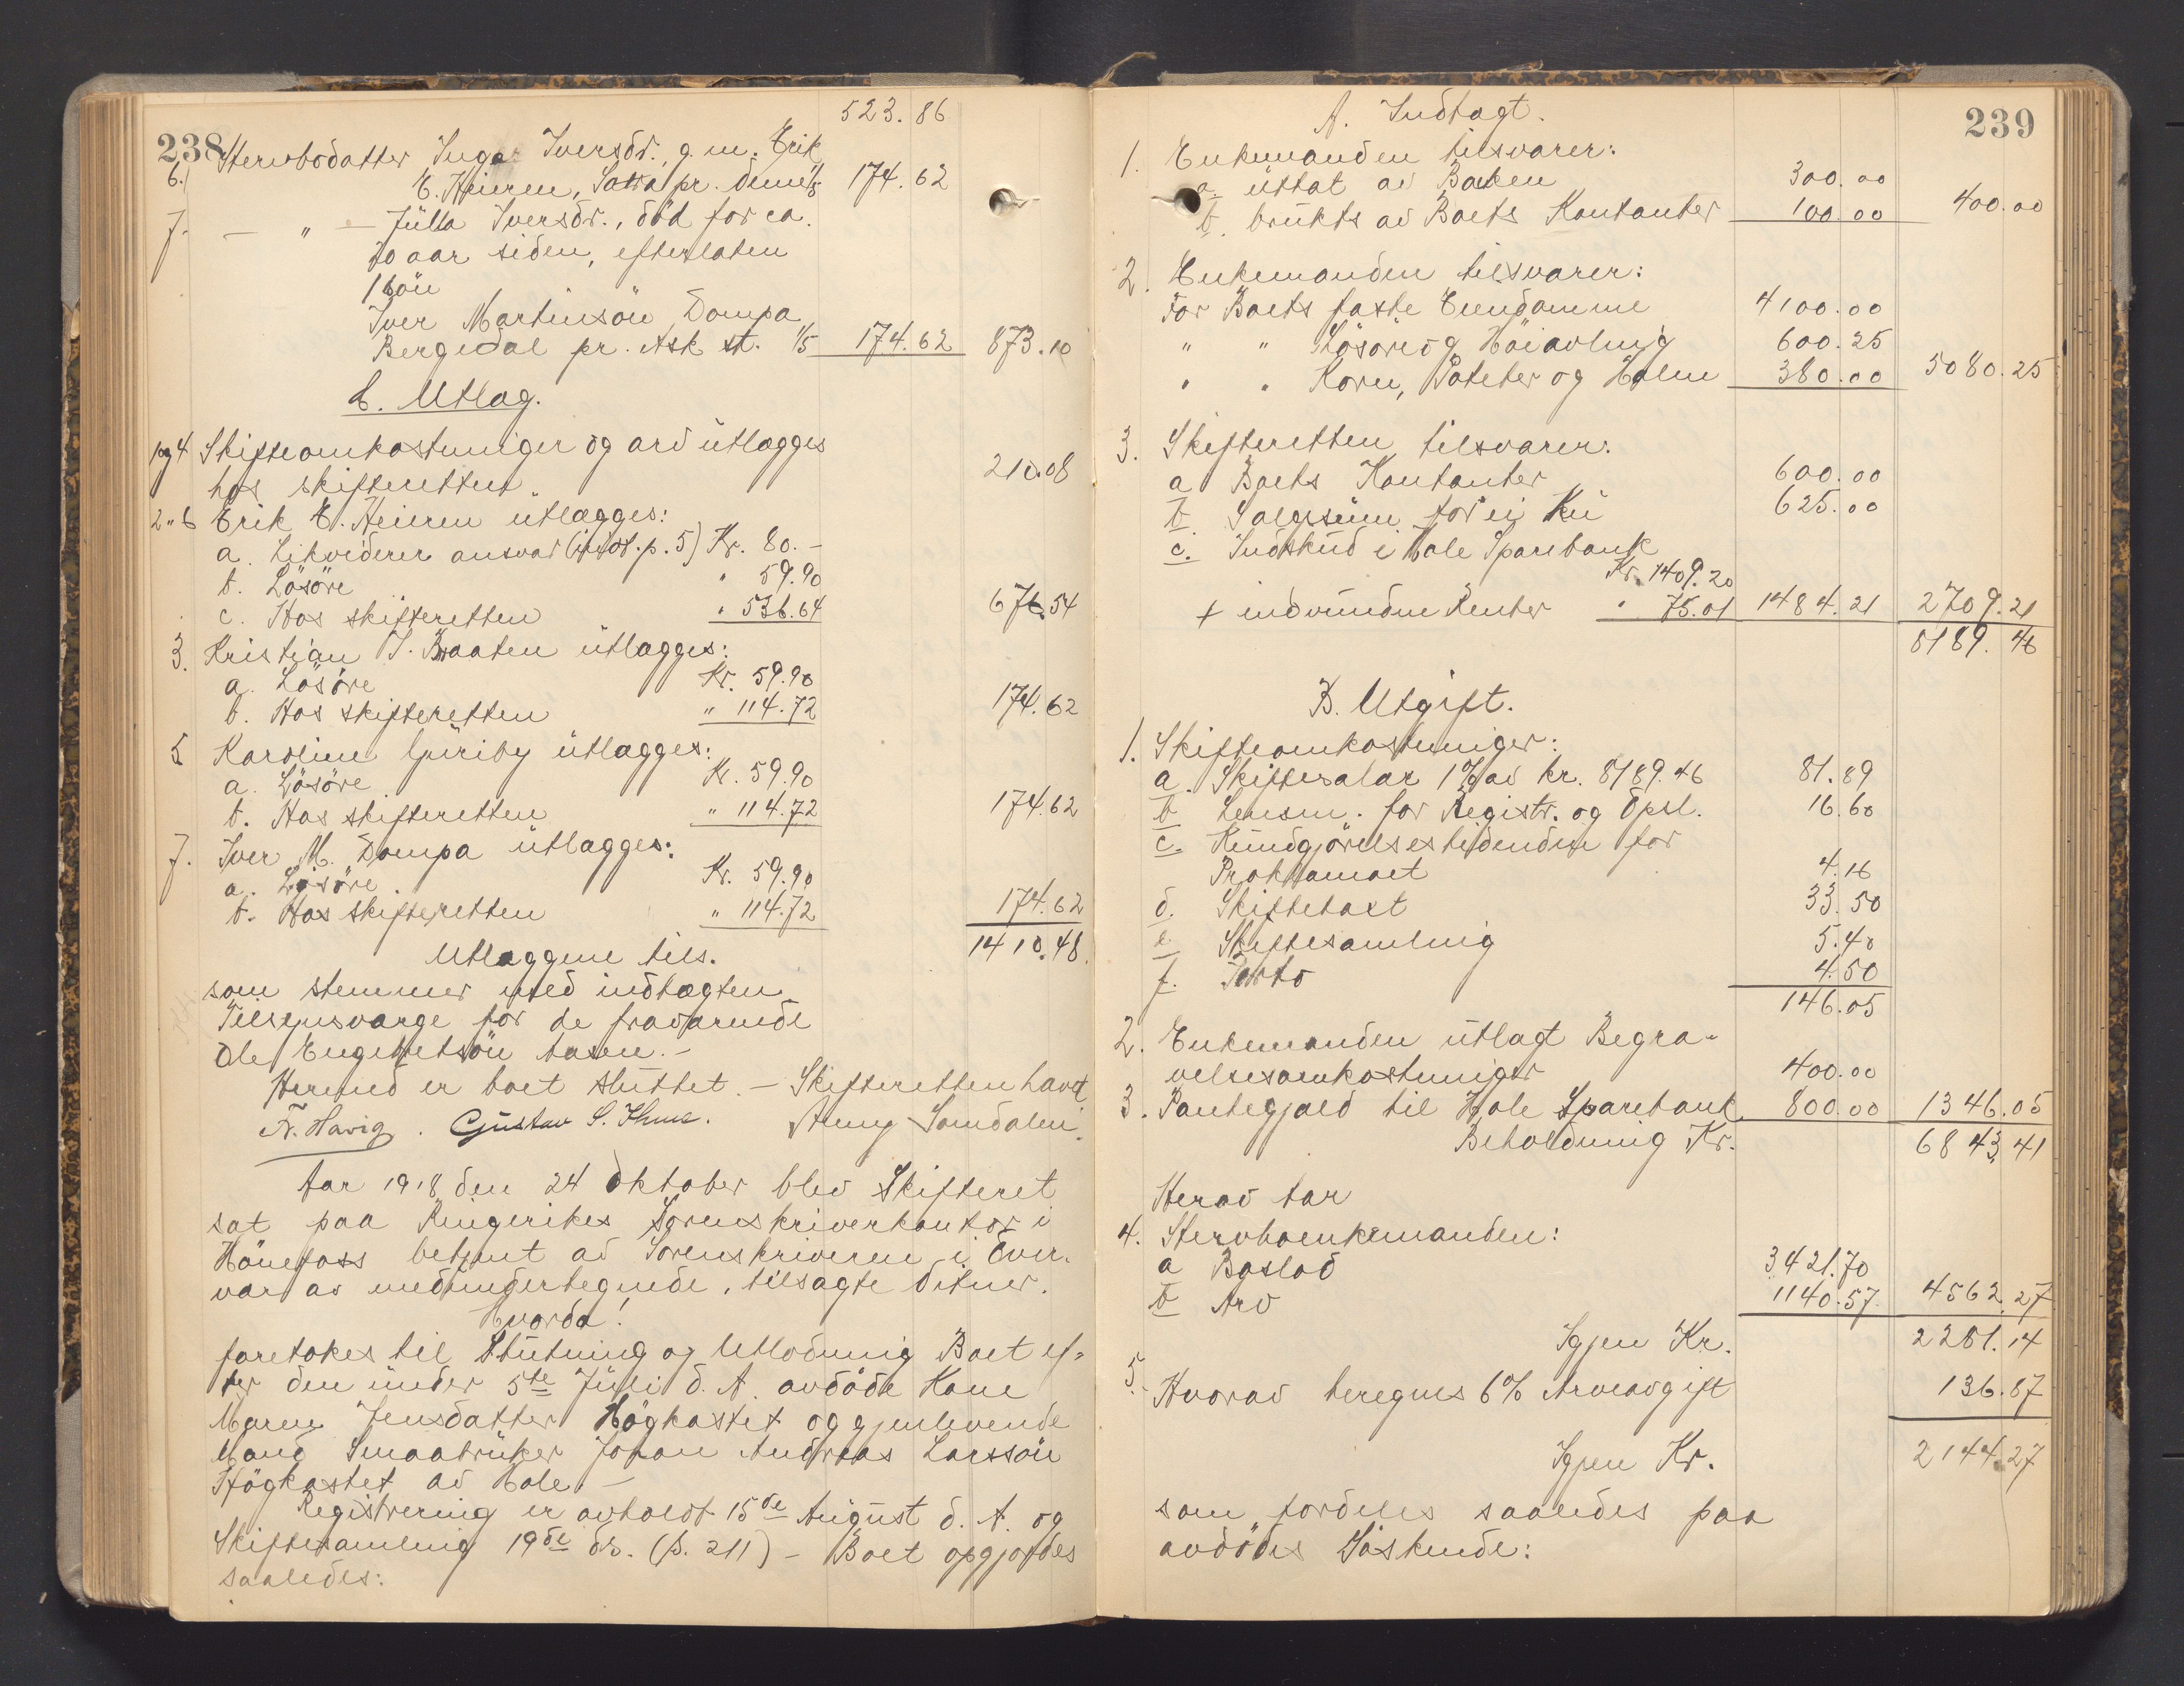 523.86
238
6. Stervbodatter Inga Iversdr., g.m. Erik
E. Heieren, Sadra pr. Ducie 1/5 174.62
7. — " — Julla Iversdr., död for ca.
20 aar siden, efterlaten
1 sön
Iver Martinsön Dompa
Bergedal pr. Ask st. 1/5 174.62 873.10
C. Utlæg.
1 og 4 Skifteomkostninger og arv utlægges
hos skifteretten 210.08
2 " 6 Erik E. Heieren utlægges:
a. Likviderer ansvar (indt. p. 5) Kr. 80.-
b. Lösöre " 59.90
c. Hos skifteretten " 536.64 676.54
3. Kristian I. Braaten utlægges:
a. Lösöre Kr. 59.90
b. Hos skifteretten " 114.72 174.62
5 Karoline Guriby utlægges:
a. Lösöre Kr. 59.90
b. Hos skifteretten " 114.72 174.62
7. Iver M. Dompa utlægges:
a. Lösöre Kr. 59.90
b. Hos skifteretten " 114.72 174.62
Utlæggene tils. 1410.48
som stemmer med indtægten
Tilsynsværge for de fraværende
Ole Engebretsön Aasen.-
Hermed er boet sluttet. - Skifteretten hævet
Fr. Harig. Gustav S. Amy Somdalen
Aar 1918 den 24 Oktober blev Skifteret
sat paa Ringerikes Sorenskriverkontor i
Hönefoss betjent av Sorenskriveren i Over-
vær av medundertegnede, tilsagte Vitner.
Hvorda!
foretokes til Slutning og Utlodning Boet ef-
ter den under 5te Juli d. A. avdöde Kone
Maren Jensdatter Högkastet og gjenlevende
Mand Smaabruker Johan Andreas Larssön
Högkastet av Hole -
Registrering er avholdt 15de August d. A. og
Skiftesamling 19de ds. (p. 211) - Boet opgjordes
saaledes:
239
A. Indtægt.
1. Enkemanden tilsvarer:
a. uttat av Banken 300.00
b. brukts av Boets Kontanter 100.00 400.00
2. Enkemanden tilsvarer:
For Boets faste Eiendomme 4100.00
" " Lösöre og Höiavling 600.25
" " Korn, Poteter og Halm 380.00 5080.25
3. Skifteretten tilsvarer:
a Boets Kontanter 600.00
b Salgssum for ei Ku 625.00
c. Indskud i Hole Sparebank
Kr. 1409.20
+ indvundne Renter " 75.01 1484.21 2709.21
8189.46
B. Utgift.
1. Skifteomkostninger:
a. Skiftesalær 1% av kr. 8189.46 81.89
b Lensm. for Registr. og Opsl. 16.60
c. Kundgjörelsestidende for
Proklamaet 4.16
d. Skiftetakst 33.50
e Skiftesamling 5.40
f. Porto 4.50
146.05
2. Enkemanden utlagt Begra-
velsesomkostninger 400.00
3. Pantegjæld til Hole Sparebank 800.00 1346.05
Beholdning Kr. 6843.41
Herav tar
4. Stervboenkemanden:
a Boslod 3421.70
b Arv 1140.57 4562.27
Igjen Kr. 2281.14
5. Hvorav beregnes 6% Arveavgift 136.87
Igjen Kr. 2144.27
som fordeles saaledes paa
avdödes Söskende: